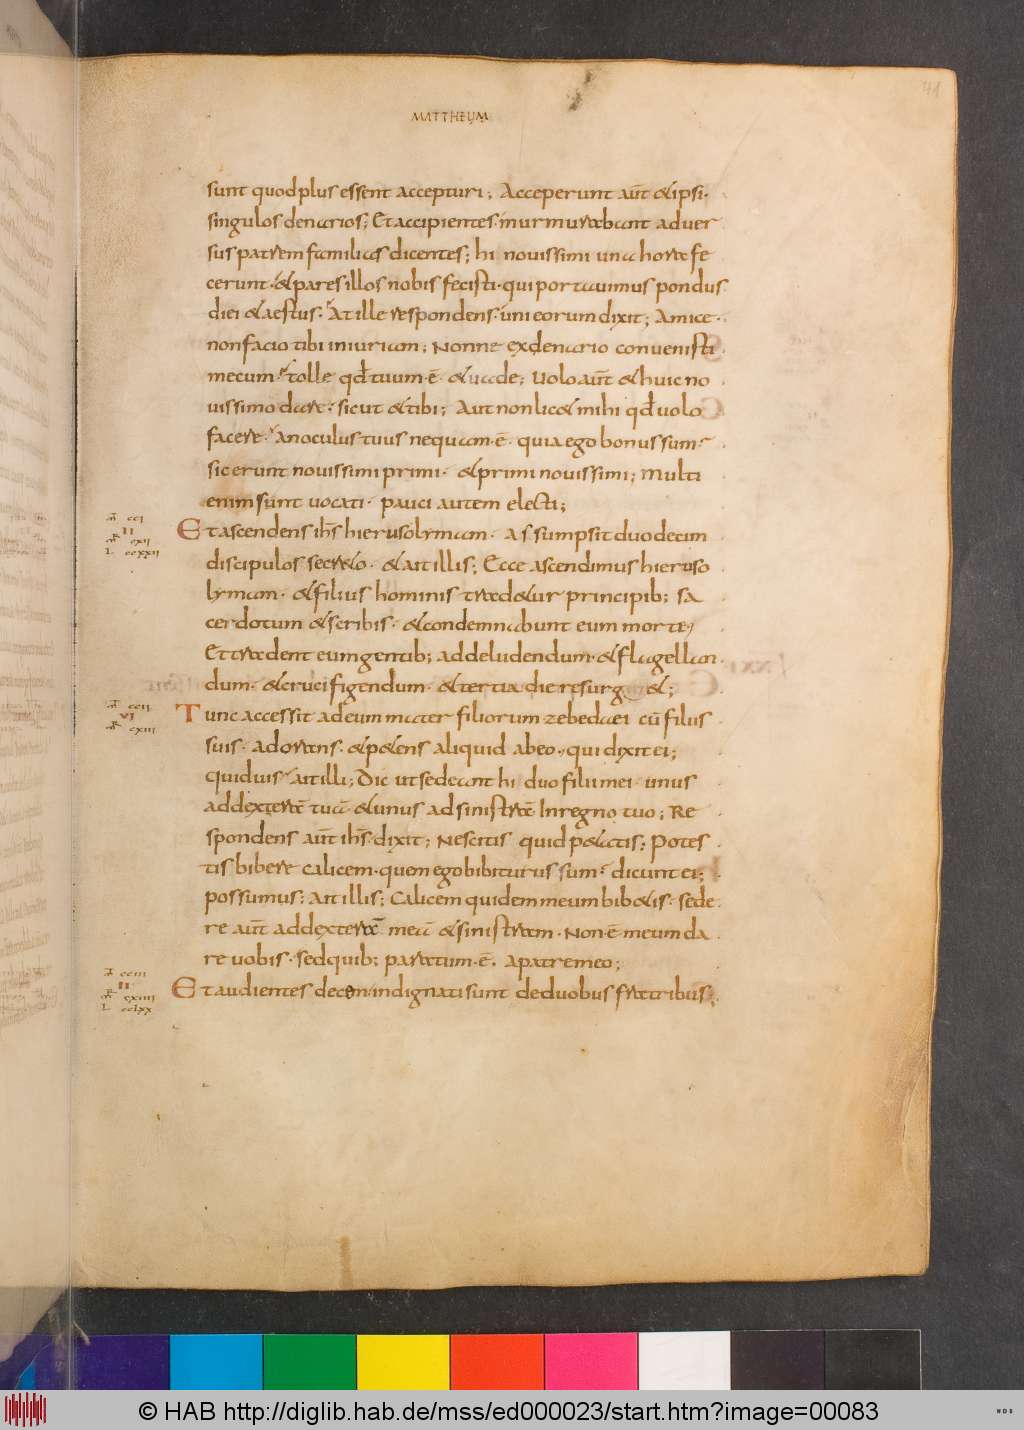 41
MATTHEUM
sunt quod plus essent accepturi; Acceperunt aūt & ipsi·
singulos denarios; Et accipientes· murmurabant aduer
sus patrem familias dicentes; hi nouissimi una hora fe
cerunt· & pares illos nobis fecisti· qui portauimus pondus
diei & aestus· At ille respondens· uni eorum dixit; Amice·
non facio tibi iniuriam; Nonne ex denario conuenisti
mecum· tolle qđ tuum· ē· & uade; Uolo aūt & huic no
uissimo dare· sicut & tibi; Aut non lic& mihi qđ uolo
facere· An oculus tuus nequam· ē· quia ego bonus sum·
sic erunt nouissimi primi· & primi nouissimi; Multi
enim sunt uocati· pauci autem electi;
m̄ cci
II
mr̄ cxii
L ccxxii
Et ascendens ihs̄ hierusolymam· Assumpsit duodecim
discipulos secreto· & ait illis; Ecce ascendimus hieruso
lymam· & filius hominis trad&ur principib; sa
cerdotum & scribis· & condemnabunt eum morte,
Et tradent eum gentib; ad deludendum· & flagellan
dum· & crucifigendum· & tertia die resurg&;
m̄ ccii
VI
mr̄ cxiii
Tunc accessit ad eum mater filiorum zebedaei cū filiis
suis· adorans· & p&ens aliquid ab eo·, qui dixit ei;
quid uis· ait illi; Dic ut sedeant hi duo filii mei· unus
ad dexterā tuā· & unus ad sinistrā In regno tuo; Re
spondens aūt ihs̄· dixit; Nescitis quid p&atis; Potes
tis bibere calicem· quem ego bibiturus sum· dicunt ei;
possumus; Ait illis; Calicem quidem meum bib&is· sede
re aūt ad dexterā meā & sinistram· Non· ē· meum da
re uobis· sed quib; paratum· ē· a patre meo;
m̄ cciii
II
mr̄ cxiiii
L cclxx
Et audientes decem· indignati sunt de duobus fratribus;
© HAB http://diglib.hab.de/mss/ed000023/start.htm?image=00083